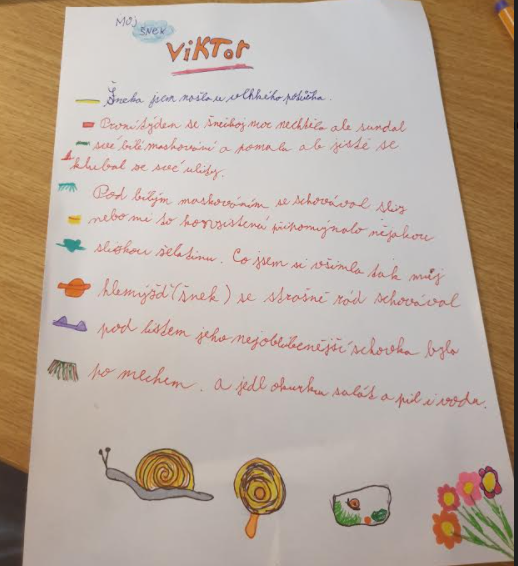 MŮJ
ŠNEK
VIKTOr
Šneka jsem našla u vlhkého potůčka.
První týdem se šnekoj moc nechtělo ale sundal
své bílé maskování a pomalu ale jistě se
klubal ze své ulity.
Pod bílým maskováním se schovával sliz
nebo mi to konzistencí připomýnalo nějakou
slizkou želatinu. Co jsem si všimla tak můj
hlemýžď (šnek) se strašně rád schovával
pod listem jeho nejoblíbenější schovka byla
po mechem. a jedl okurku salát a pil i vodu.